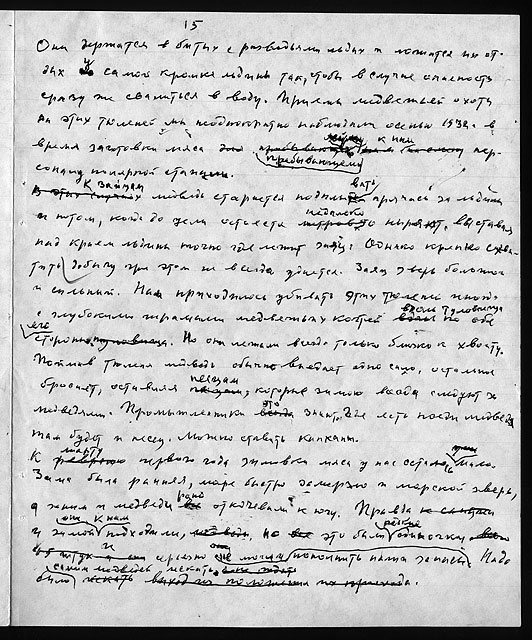 15
Они держатся в битых с разводьями льдах и ложатся на от-
дых у самой кромки льдины так, чтобы в случае опасности
сразу же свалиться в воду. Приемы медвежьей охоты
на этих тюленей мы неоднократно наблюдали осенью 1932 г. в
время заготовки мяса для прибывающему к нам пер-
соналу полярной станции.
К зайцам медведь старается подплывать прячась за льдины
и потом, когда до цели остается недалеко то ныряет, выставив
над краем льдины точно где лежит заяц. Однако крепко схва-
тить добычу при этом не всегда удается. Заяц зверь большой
и сильный. Нам приходилось убивать этих тюленей иногда
с глубокими шрамами медвежьих когтей вдоль туловища по обе
его стороны. Но они лежали всегда только близко к хвосту.
Поймав тюленя медведь обычно выедает одно сало, остальное
бросает, оставляя песцам, которые зимою всегда следуют за
медведями. Промышленники это знают, где есть следы медведя
там будет и песец. Можно ставить капканы.
К марту первого года зимовки мяса у нас осталось мало.
Зима была ранняя, море быстро замерзло и морской зверь,
а за ним и медведи рано откочевали к югу. Правда
и зимой они к нам подходили, но это были редкие одиночки
и серьезно не могли пополнить наши запасы. Надо
было самим медведя искать